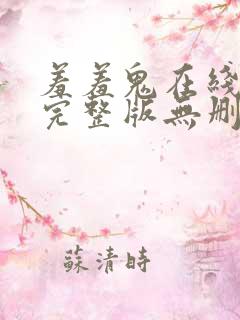 羞羞鬼在綫
完整版無删
蘇清時